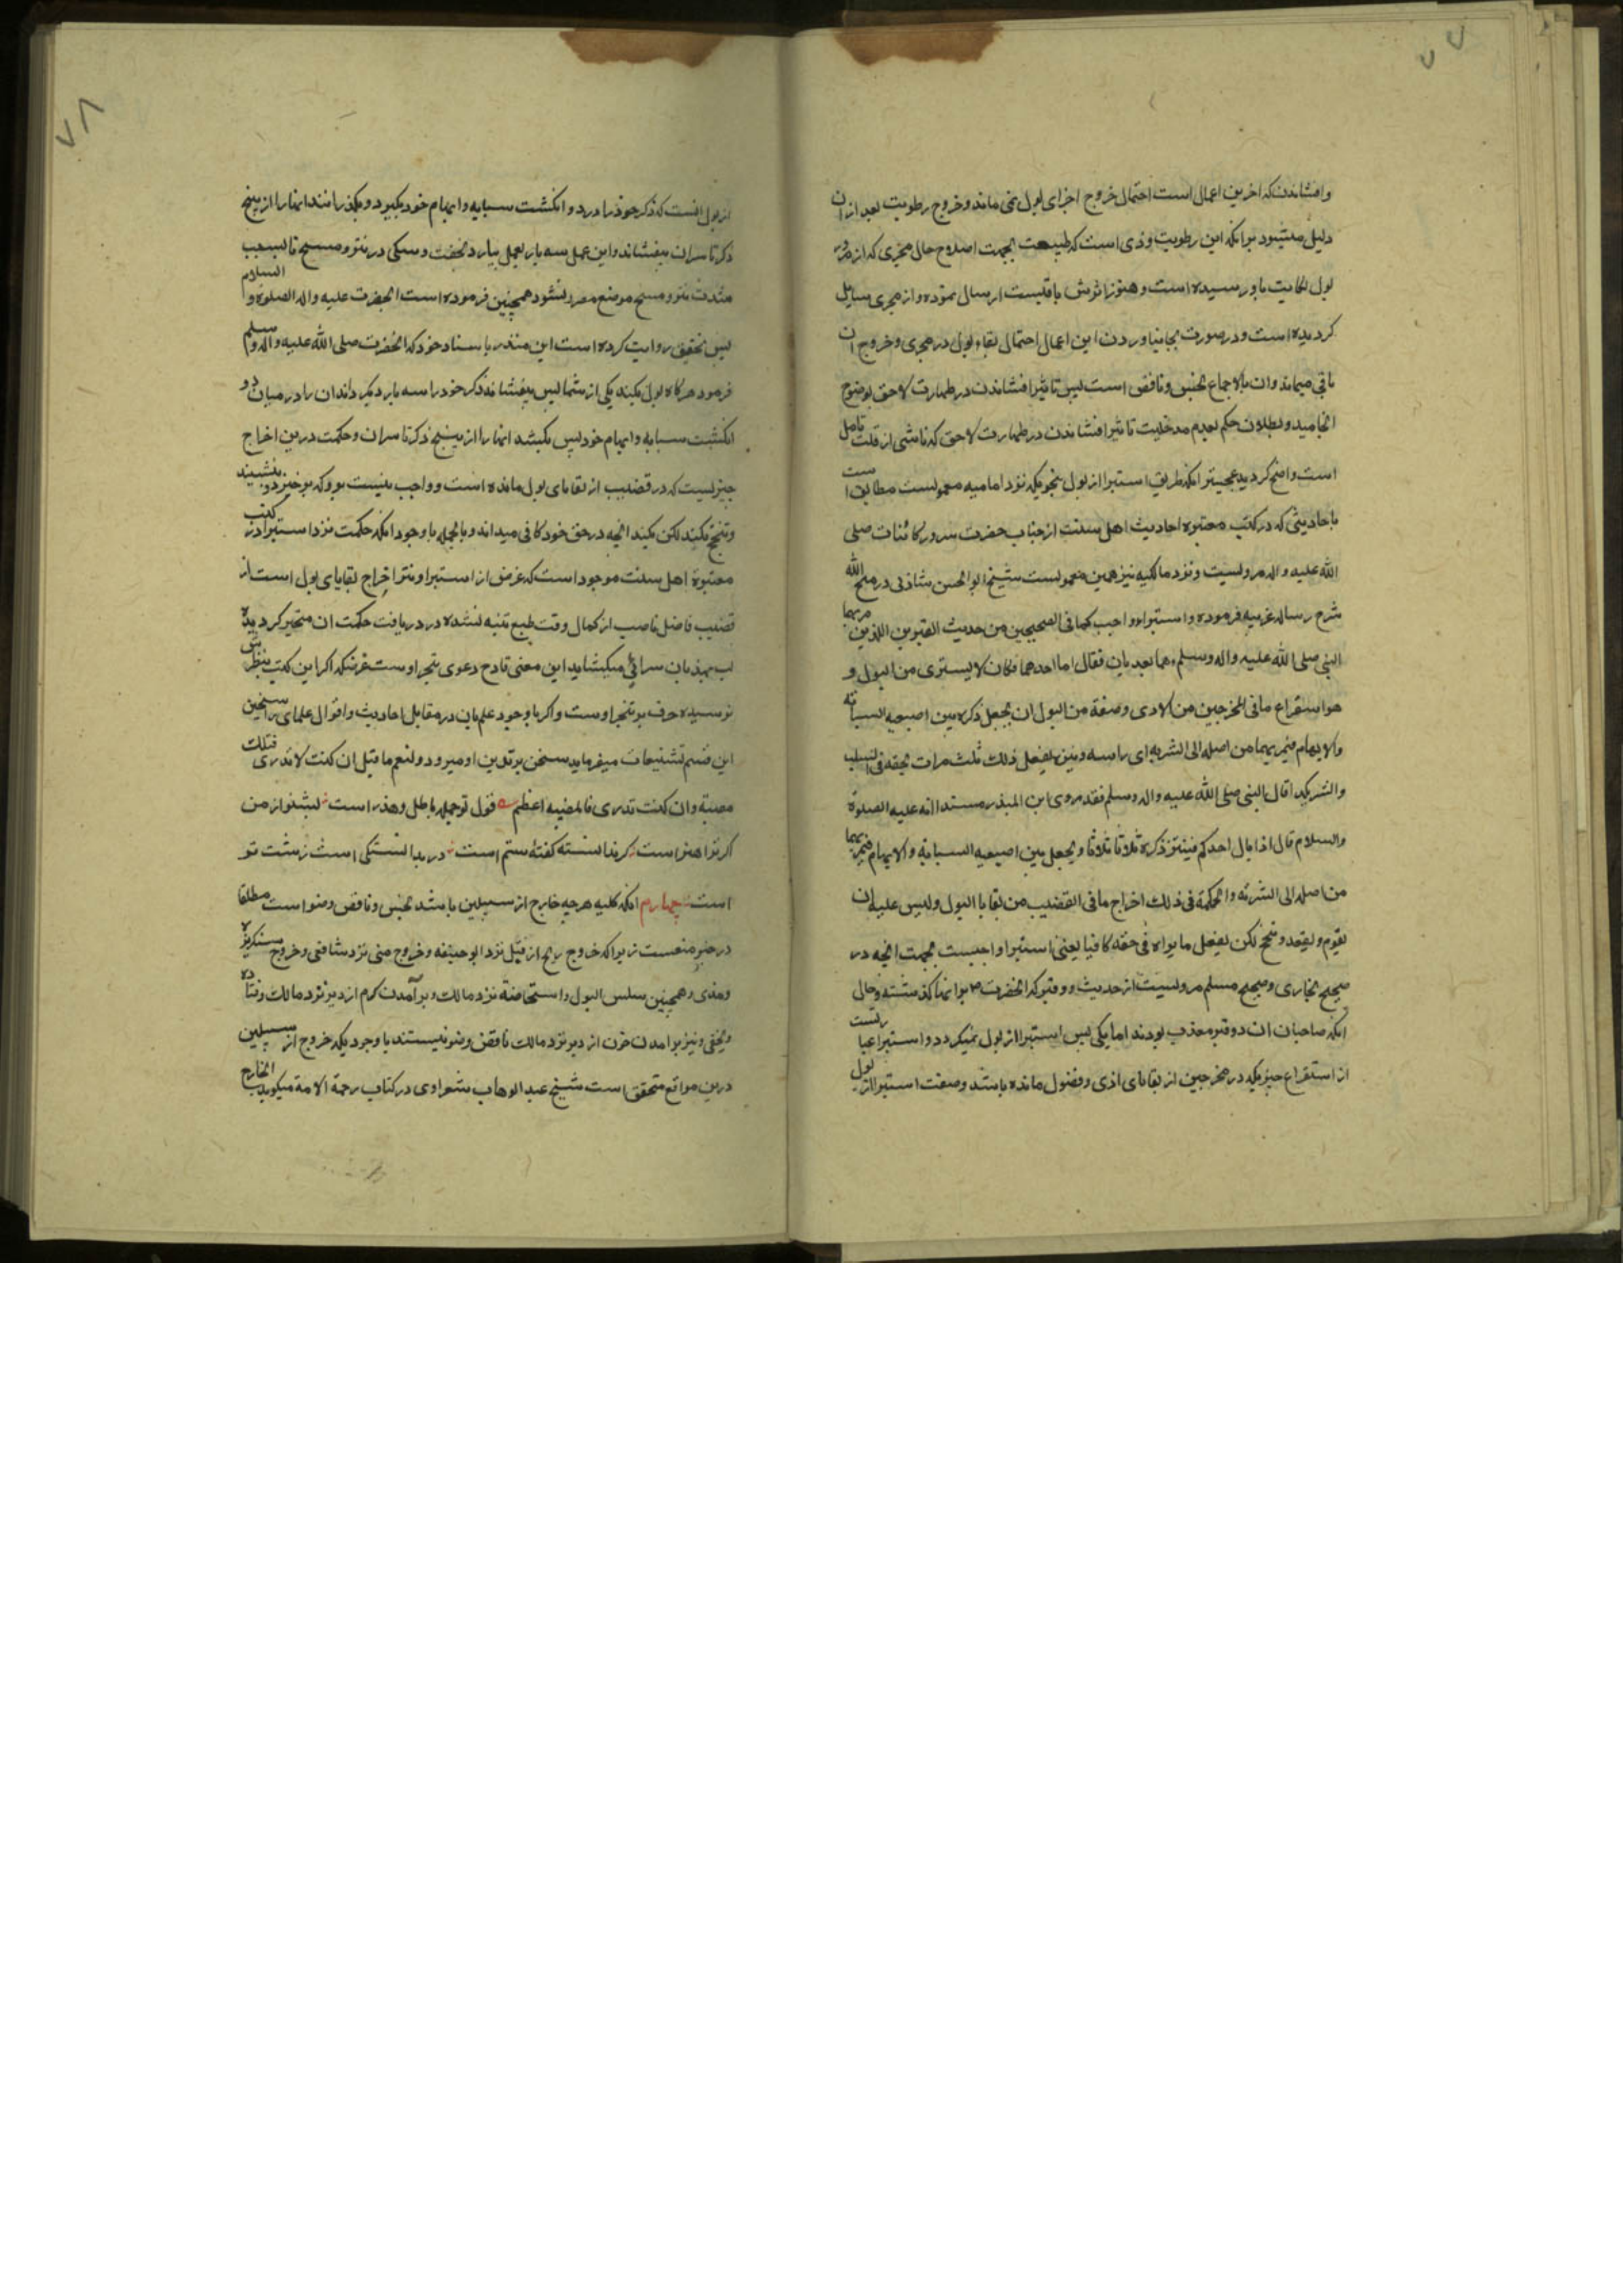 ۷۷
وافشاندن که اخرین اعمال است احتمال خروج اجزای بول نمی ماند و خروج رطوبت بعد ازان
دلیل میشود برانکه این رطوبت وذی است که طبیعت بجهت اصلاح حال مجری که از مرور
بول نکایت باو رسیده است و هنوز اثرش باقیست ارسال نموده و از مجری سایل
کردیده است و در صورت بجا نیاوردن این اعمال احتمال بقاء بول در مجری و خروج ان
باقی میماند وان بالاجماع نجس و ناقض است پس تاثیر افشاندن در طهارت لاحق بوضوح
انجامید و بطلان حکم بعدم مدخلیت تاثیر افشاندن در طهارت لاحق که ناشی از قلت تامل
است واضح کردید عجیبتر انکه طریق استبرا از بول بنحویکه نزد امامیه معمولست مطابق است
با حادیثی که در کتب معتبره احادیث اهل سنت از جناب حضرت سرور کائنات صلی
الله علیه و اله مرویست و نزد مالکیه نیز همین معمولست شیخ ابو الحسن شاذلی در منح الله
شرح رساله عزیه فرموده و استبراء واجب کما فی الصحیحین من حدیث القبرین اللذین مر بهما
النبی صلی الله علیه واله وسلم وهما یعذبان فقال اما احدهما فکان لا یستبری من البول و
هو استفراغ ما فی المخرجین من الاذی وصفة من البول ان یجعل ذکره بین اصبعیه السبابة
والابهام فیمر بهما من اصله الی الشربه ای راسه وینتر یفعل ذلک ثلث مرات بخفه فی السلب
والنتر یکد اقال النبی صلی الله علیه واله وسلم فقد روی ابن المنذر مسندا انه علیه الصلوة
والسلام قال اذا بال احدکم فینتر ذکره ثلاثا ثلاثا ویجعل بین اصبعیه السبابة والابهام فیمر بهما
من اصله الی الشربه والحکمة فی ذلک اخراج ما فی القضیب من بقایا البول ولیس علیه ان
یقوم ویقعد وتنحنح لکن یفعل ما یراه فی حقه کافیا یعنی استبرا واجبست بجهت انچه در
صحیح بخاری و صحیح مسلم مرویست از حدیث دو قبر که انحضرت ص برانها کذشته و حال
انکه صاحبان ان دو قبر معذب بودند اما یکی پس استبرا از بول نمیکرد و استبرا عبارتست
از استفراغ چیزیکه در مخرجین از بقایای اذی و فضول مانده باشد و صفت استبرا از بول
۷۸
از بول انست که ذکر خود را در دو انکشت سبابه و ابهام خود بکیرد و بکذراند انها را از بیخ
ذکر تا سر ان بیفشاند و این عمل سه بار بعمل بیارد بخفت و سبکی در نتر و مسح تا بسبب
شدت نتر و مسح موضع مضرر نشود همچنین فرموده است انحضرت علیه واله الصلوة والسلام
پس بتحقیق روایت کرده است ابن منذر باسناد خود که انحضرت صلی الله علیه واله وسلم
فرمود هرکاه بول بکند یکی از شما پس بیفشاند ذکر خود را سه بار و بکرداند ان را در میان دو
انکشت سبابه و ابهام خود پس بکشد انها را از بیخ ذکر تا سر ان و حکمت درین اخراج
چیزیست که در قضیب از بقایای بول مانده است و واجب نیست بر وکه برخیزد و بنشیند
و تنحنح بکند لکن بکند انچه در حق خود کافی میداند و بالجمله با وجود انکه حکمت نزد استبرا در کتب
معتبره اهل سنت موجود است که غرض از استبرا و نتر اخراج بقایای بول است از
قضیب فاضل ناصب از کمال وقت طبع تنبه نشده در دریافت حکمت ان متحیر کردیده
لب بهذیان سرائی میکشاید این معنی قادح دعوی تبحر اوست غرضکه اکر این کتب بنظرش
نرسیده حرف بر تبحر اوست و اکر با وجود علم بان در مقابل احادیث و اقوال علمای راسخین
این قسم تشنیعات میفرماید سخن بر تدین او میرود ولنعم ما قیل ان کنت لا تدری فتلک
مصیبة وان کنت تدری فالمصیبه اعظم قول توجمله باطل و هذر است بشنو از من
اکر ترا هنر است کر ندانسته کفتهٔ ستم است در بدانستکی است زشت تو
است چهارم انکه کلیه هرچه خارج از سبیلین باشد نجس و ناقض وضو است مطلقا
در حیز منعست زیراکه خروج ریح از قبل نزد ابو حنیفه و خروج منی نزد شافعی و خروج سنکریزه
و مذی و همچنین سلس البول و استحاضة نزد مالک و برآمدن کرم از دبر نزد مالک و قتاده
و نخعی و نیز برامدن خون از دبر نزد مالک ناقض وضو نیستند با وجودیکه خروج از سبیلین
درین مواقع متحقق است شیخ عبد الوهاب شعراوی در کتاب رحمة الامة میکوید الخارج